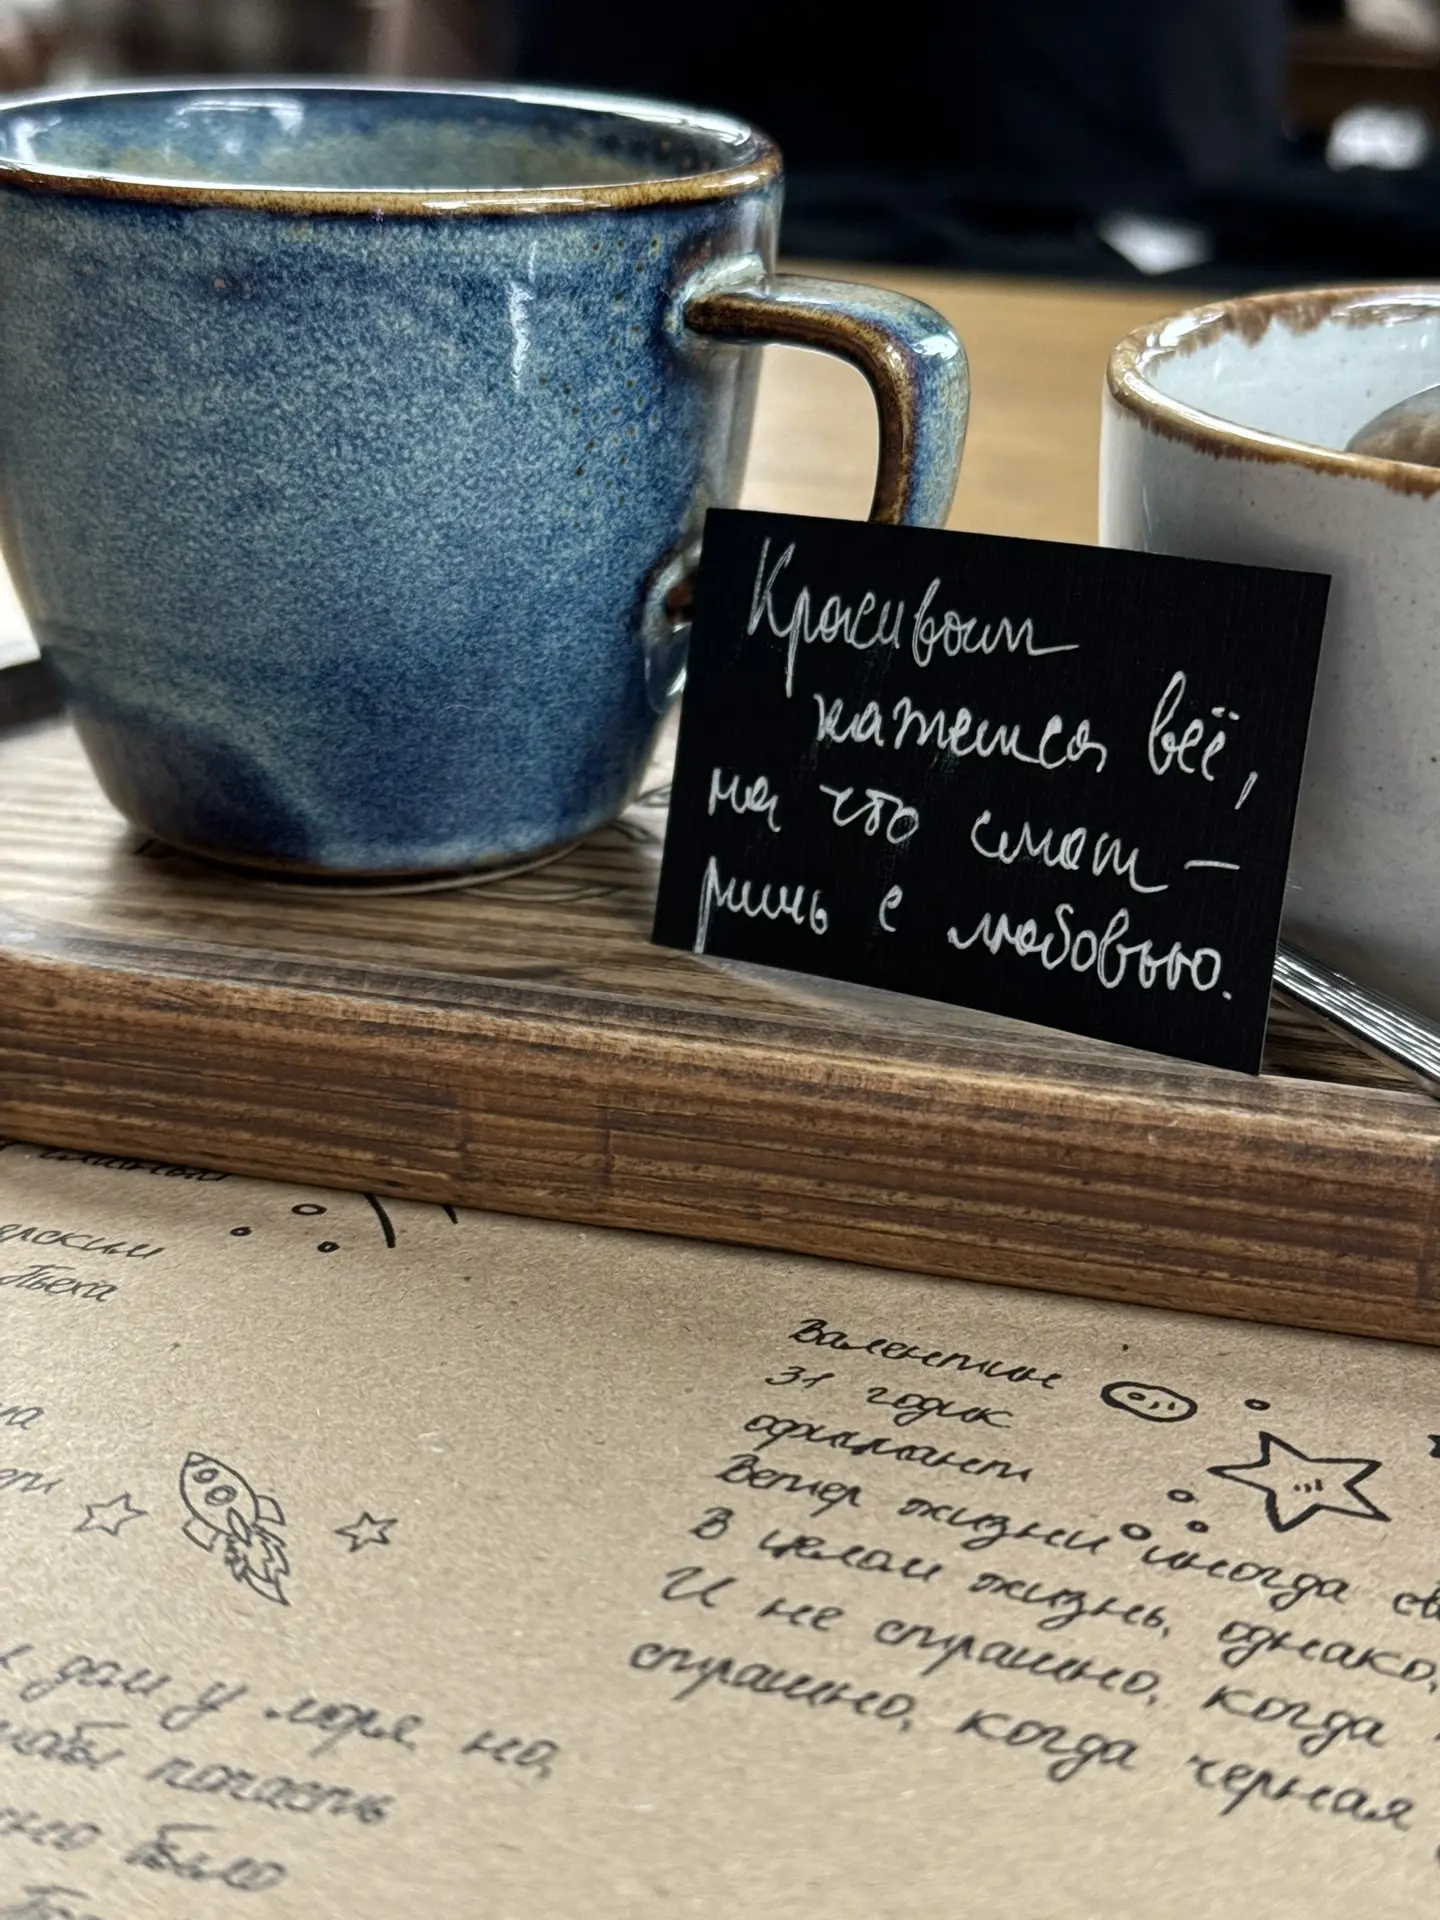 Красивым
кажется всё,
на что смот-
ришь с любовью.
Пьеха
Валентин
31 годик
официант
Ветер жизни иногда
В целом жизнь, однако,
И не страшно, когда
страшно, когда черная
дом у моря но,
попасть
было